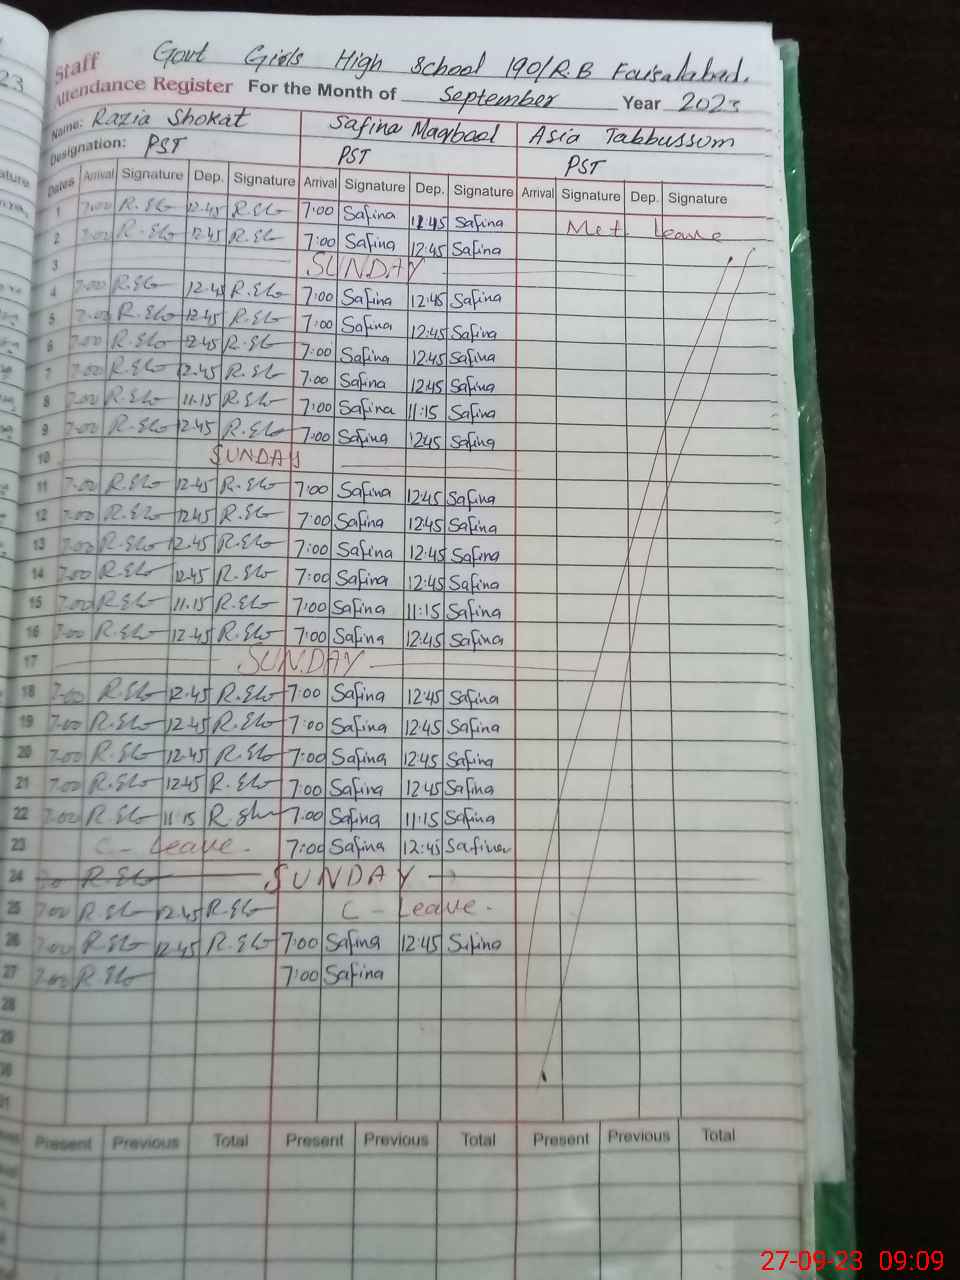 Govt Girls High School 190/R.B Faisalabad.
Staff
Attendance Register For the Month of September Year 2023
23
Name: Razia Shokat Safina Maqbool Asia Tabbussum
Designation: PST PST PST
Dates Arrival Signature Dep. Signature Arrival Signature Dep. Signature Arrival Signature Dep. Signature
1 7:00 12.45 7:00 Safina 12:45 Safina Met. Leave
2 7:00 12.45 7:00 Safina 12:45 Safina
3 SUNDAY
4 7:00 12.45 7:00 Safina 12:45 Safina
5 7:00 12.45 7:00 Safina 12:45 Safina
6 7:00 12.45 7:00 Safina 12:45 Safina
7 7:00 12.45 7:00 Safina 12:45 Safina
8 7:00 11.15 7:00 Safina 11:15 Safina
9 7:00 12.45 7:00 Safina 12:45 Safina
10 SUNDAY
11 7:00 12.45 7:00 Safina 12:45 Safina
12 7:00 12.45 7:00 Safina 12:45 Safina
13 7:00 12.45 7:00 Safina 12:45 Safina
14 7:00 12.45 7:00 Safina 12:45 Safina
15 7:00 11.15 7:00 Safina 11:15 Safina
16 7:00 12.45 7:00 Safina 12:45 Safina
17 SUNDAY
18 7:00 12.45 7:00 Safina 12:45 Safina
19 7:00 12.45 7:00 Safina 12:45 Safina
20 7:00 12.45 7:00 Safina 12:45 Safina
21 7:00 12.45 7:00 Safina 12:45 Safina
22 7:00 11.15 7:00 Safina 11:15 Safina
23 C - Leave. 7:00 Safina 12:45 Safina
24 SUNDAY
25 7:00 12.45 C - Leave.
26 7:00 12.45 7:00 Safina 12:45 Safina
27 7:00 7:00 Safina
28
29
30
31
Present Previous Total Present Previous Total Present Previous Total
27-09-23 09:09